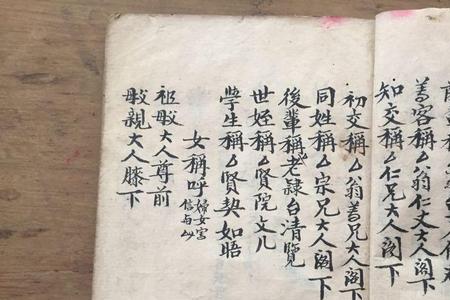 善客稱厶翁仁丈大人閣
知交稱厶仁兄大人閣下
初交稱厶翁善兄大人閣下
同姓稱厶宗兄大人閣下
後輩稱老隸台清覽
世姪稱厶賢院文几
學生稱厶賢契如晤
女稱呼婦女宮信每以
祖母大人尊前
母親大人膝下